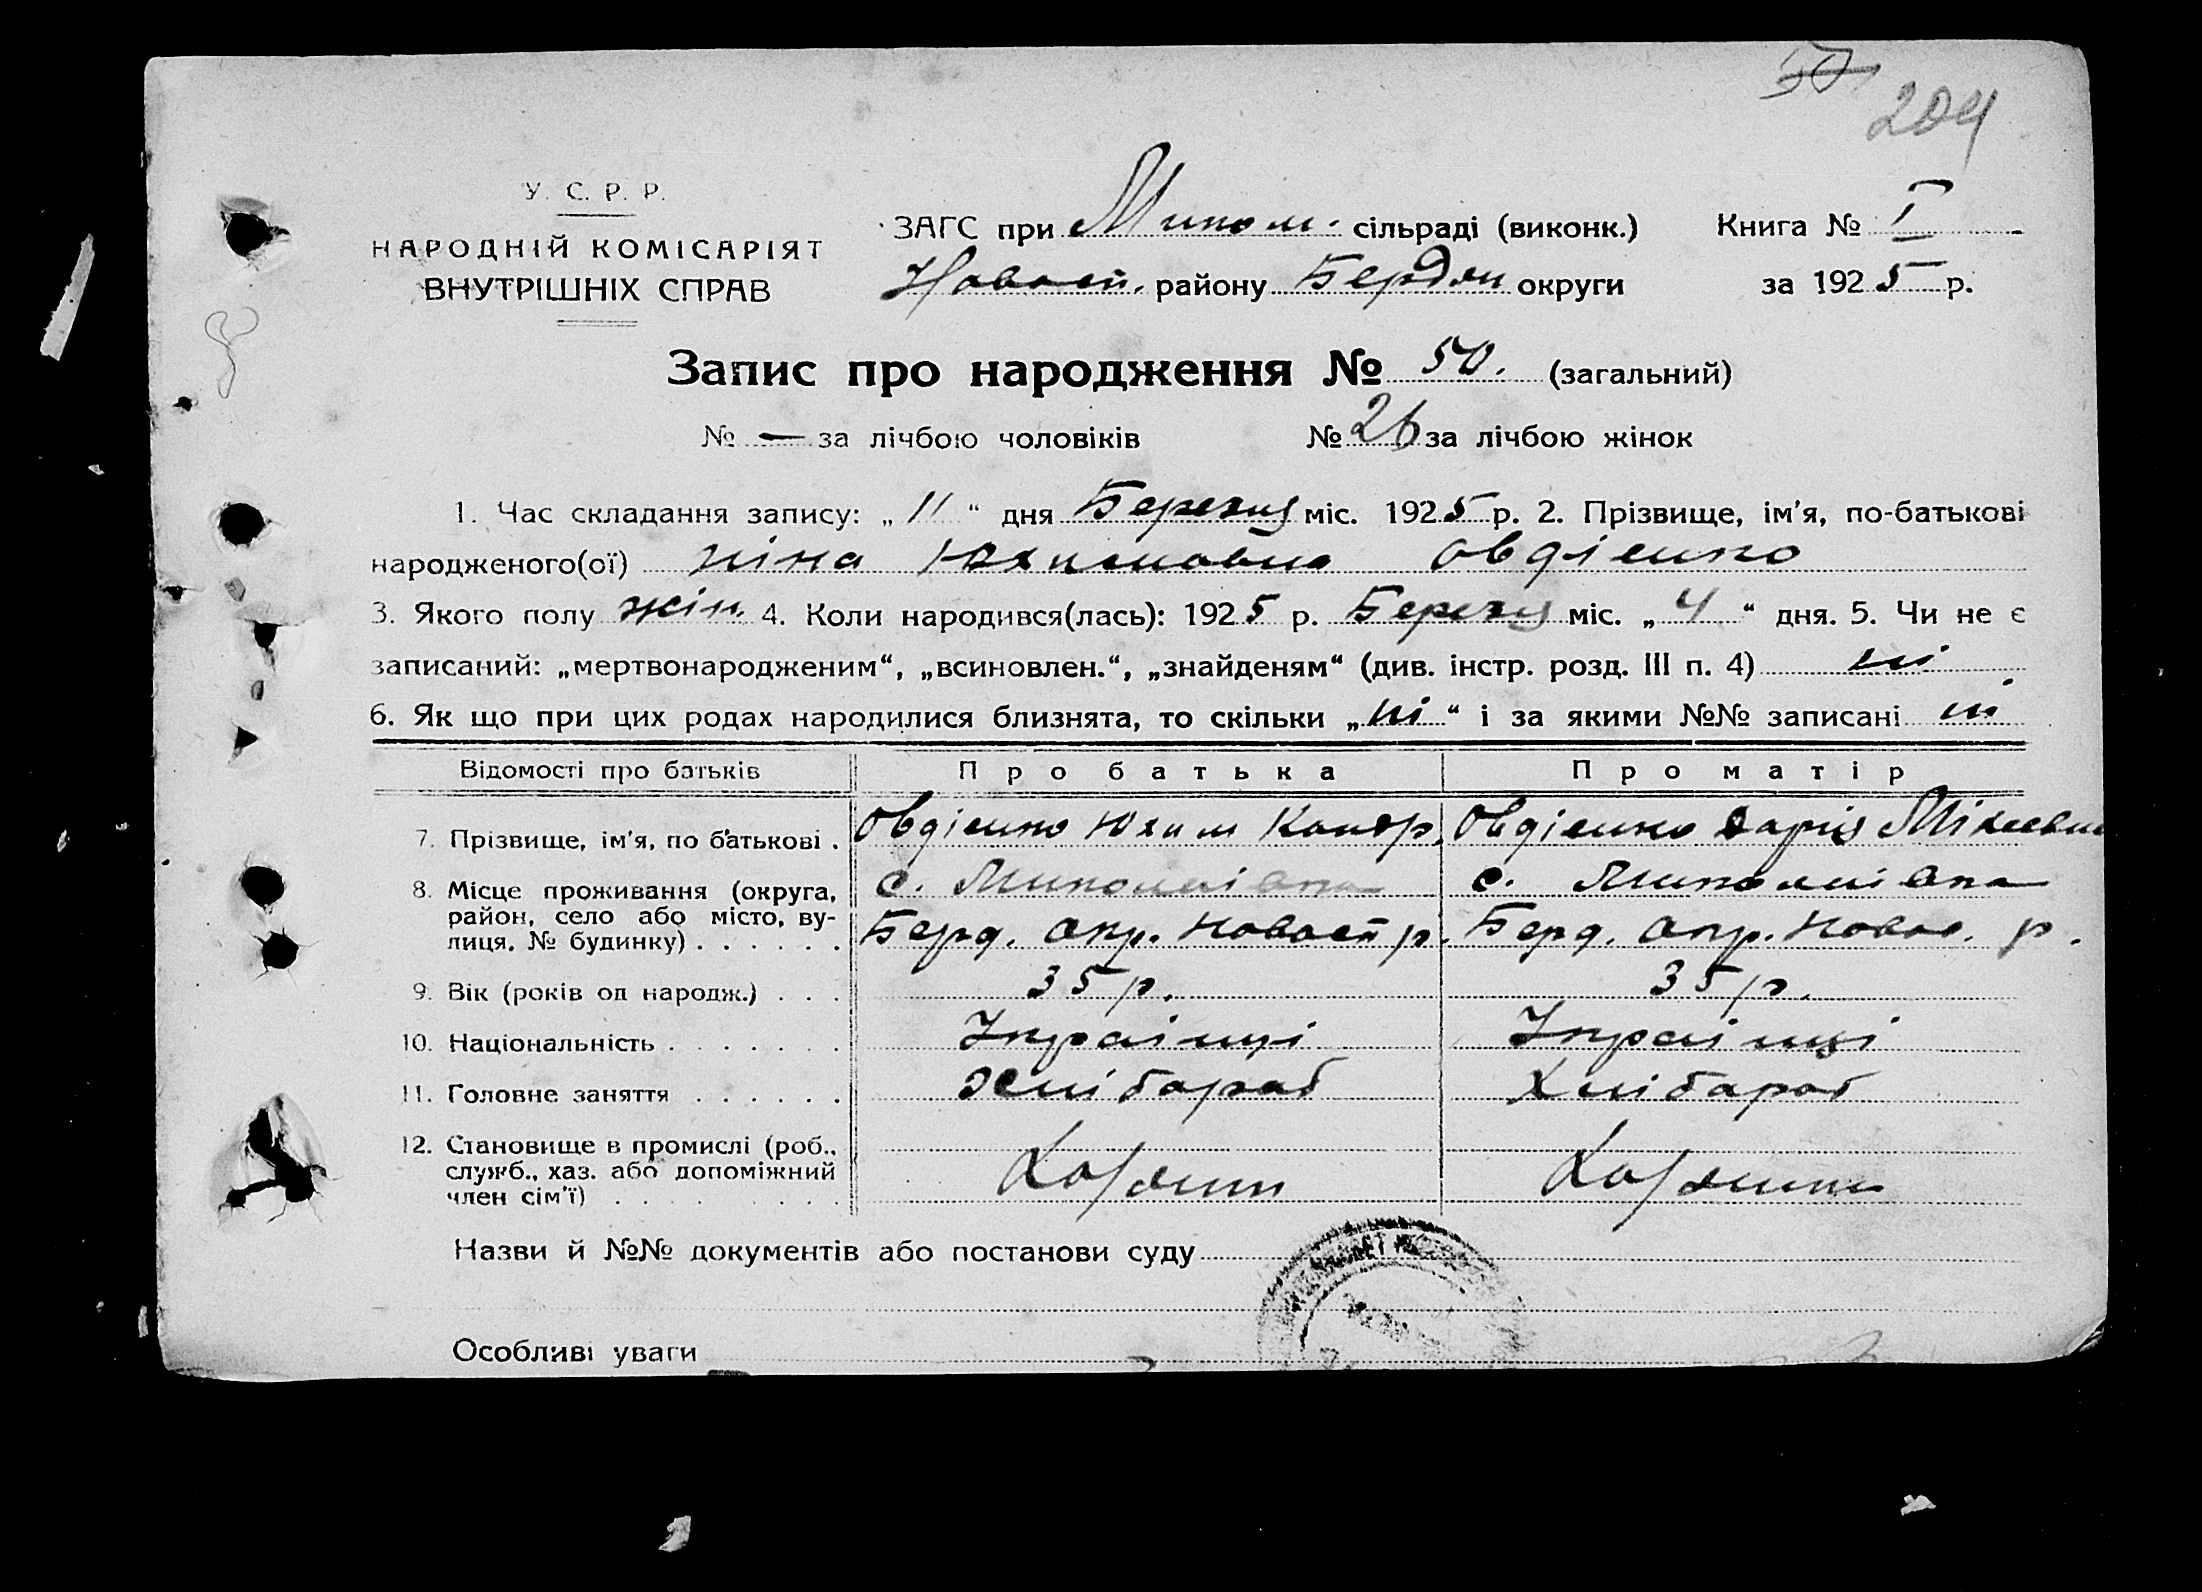 50
204
У. С. Р. Р.
НАРОДНІЙ КОМІСАРІЯТ
ВНУТРІШНІХ СПРАВ
ЗАГС при Микол. сільраді (виконк.) Книга № I
Новосп. району Бердян округи за 1925 р.
Запис про народження № 50. (загальний)
№ — за лічбою чоловіків № 26 за лічбою жінок
1. Час складання запису: „11“ дня Березня міс. 1925 р. 2. Прізвище, ім'я, по-батькові
народженого(ої) Ніна Юхимовна Овдієнко
3. Якого полу жін. 4. Коли народився(лась): 1925 р. Березня міс. „4“ дня. 5. Чи не є
записаний: „мертвонародженим“, „всиновлен.“, „знайденям“ (див. інстр. розд. III п. 4) ні
6. Як що при цих родах народилися близнята, то скільки „ні“ і за якими №№ записані ні
Відомості про батьків Про батька Про матір
7. Прізвище, ім'я, по батькові . Овдієнко Юхим Кондр. Овдієнко Дарія
8. Місце проживання (округа, с. Миколаівка с. Миколаівка
район, село або місто, ву-
лиця, № будинку) . . . . . . Берд. Окр. Новосп р. Берд. Окр. Новос. р.
9. Вік (років од народж.) . . . 35 р. 35 р.
10. Національність . . . . . . . Украінці Украінці
11. Головне заняття . . . . . . Хлібороб Хлібороб
12. Становище в промислі (роб.,
служб., хаз. або допоміжний
член сім'ї) . . . . . . . Хазяин
Назви й №№ документів або постанови суду
Особливі уваги